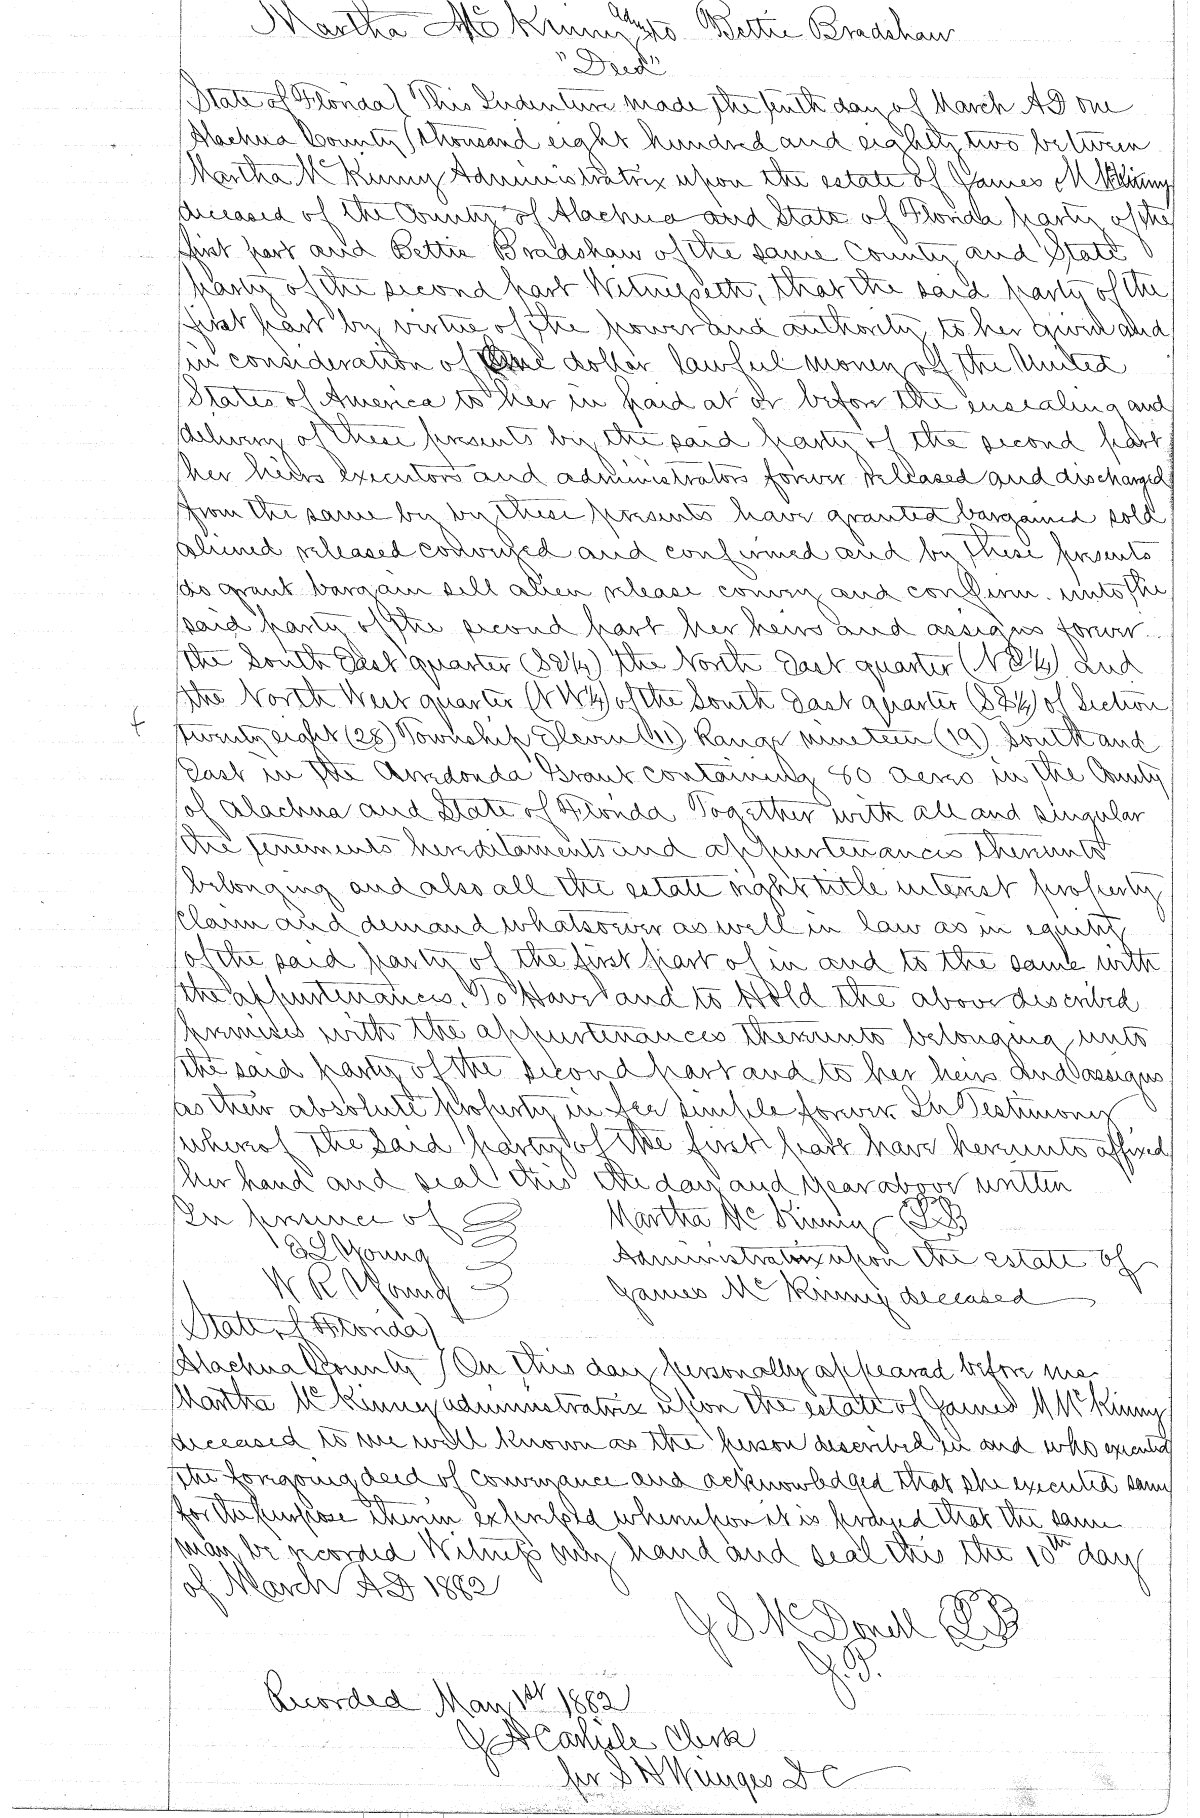 Martha McKinny Adm to Bettie Bradshaw
"Deed"
State of Florida) This Indenture made the tenth day of March AD one
Alachua County) thousand eight hundred and eighty two between
Martha McKinny Administratrix upon the estate of James M McKinny
deceased of the County of Alachua and State of Florida party of the
first part and Bettie Bradshaw of the same County and State
party of the second part Witnesseth, that the said party of the
first part by virtue of the power and authority to her given and
in consideration of One dollar lawful money of the United
States of America to her in paid at or before the ensealing and
delivery of these presents by the said party of the second part
her heirs executors and administrators forever released and discharged
from the same by by these presents have granted bargained sold
aliened released conveyed and confirmed and by these presents
do grant bargain sell alien release convey and confirm unto the
said party of the second part her heirs and assigns forever
the South East quarter (SE¼) the North East quarter (NE¼) and
the North West quarter (NW¼) of the South East quarter (SE¼) of Section
twenty eight (28) Township Eleven (11) Range nineteen (19) South and
East in the Arredonda Grant containing 80 acres in the County
of Alachua and State of Florida Together with all and singular
the tenements hereditaments and appurtenances thereunto
belonging and also all the estate right title interest property
claim and demand whatsoever as well in law as in equity
of the said party of the first part of in and to the same with
the appurtenances. To Have and to Hold the above described
premises with the appurtenances thereunto belonging unto
the said party of the second part and to her heirs and assigns
as their absolute property in fee simple forever In Testimony
whereof the said party of the first part have hereunto affixed
her hand and seal this the day and year above written
In presence of Martha McKinny LS
E L Young Administratrix upon the estate of
W R Young James McKinny deceased
State of Florida)
Alachua County) On this day personally appeared before me
Martha McKinney administratrix upon the estate of James M McKinny
deceased to me well known as the person described in and who executed
the foregoing deed of conveyance and acknowledged that she executed same
for the purpose therein expressed whereupon it is prayed that the same
may be recorded Witness my hand and seal this the 10th day
of March AD 1882
J S McDonell LS
J.P.
Recorded May 1st 1882
J A Carlisle Clerk
per S H Wienges DC